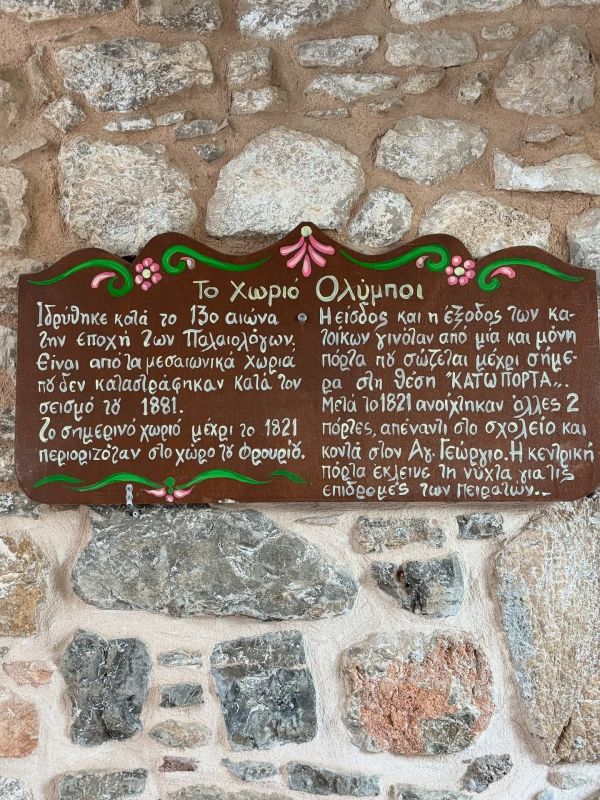 Το Χωριό Ολύμποι
Ιδρύθηκε κατά το 13ο αιώνα
την εποχή των Παλαιολόγων.
Είναι από τα μεσαιωνικά χωριά
που δεν καταστράφηκαν κατά τον
σεισμό του 1881.
Το σημερινό χωριό μέχρι το 1821
περιοριζόταν στο χώρο του φρουρίου.
Η είσοδος και η έξοδος των κα-
τοίκων γινόταν από μία και μόνη
πόρτα που σώζεται μέχρι σήμε-
ρα στη θέση "ΚΑΤΩ ΠΟΡΤΑ,,.
Μετά το 1821 ανοίχτηκαν άλλες 2
πόρτες, απέναντι στο σχολείο και
κοντά στον Αγ. Γεώργιο. Η κεντρική
πόρτα έκλεινε τη νύχτα για τις
επιδρομές των πειρατών..